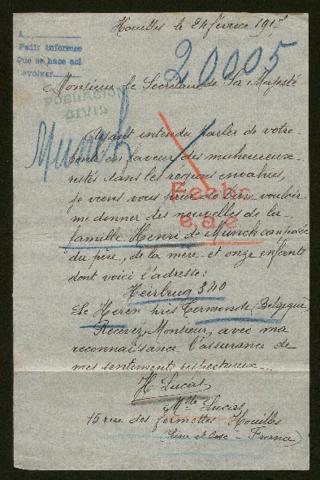 Houilles le 24 février 1915
A
Pedir informes
Que se hace aci
devolver
20005
Monsieur le Secrétaire de Sa Majesté
POBLACION
CIVIL
Munck
Ayant entendu parler de votre
bonté en faveur des malheureux
restés dans les régions envahies,
je viens vous prier de bien vouloir
me donner des nouvelles de la
famille Henri de Munck composée
du père, de la mère et onze enfants
dont voici l'adresse:
Heirbrug 340
Le Heron près Termonde Belgique
Recevez Monsieur, avec ma
reconnaissance l'assurance de
mes sentiments respectueux.
H Lucas
Mlle Lucas
15 rue des fermettes Houilles
Seine et Oise - France)